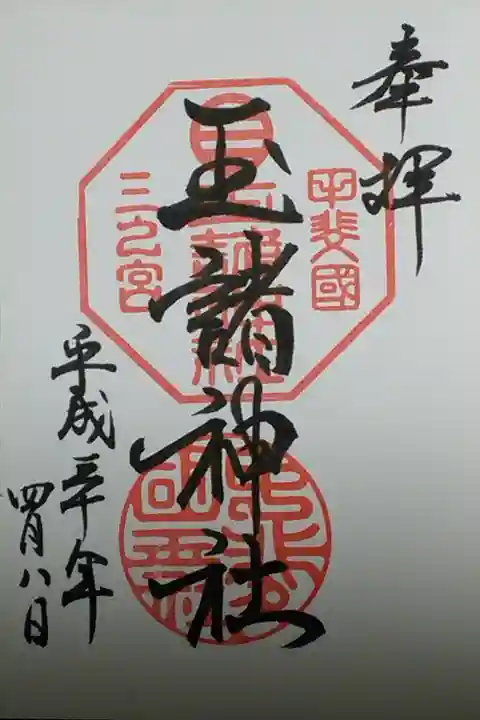 奉拝
甲斐國
玉諸神社
三之宮
平成三十年
四月八日